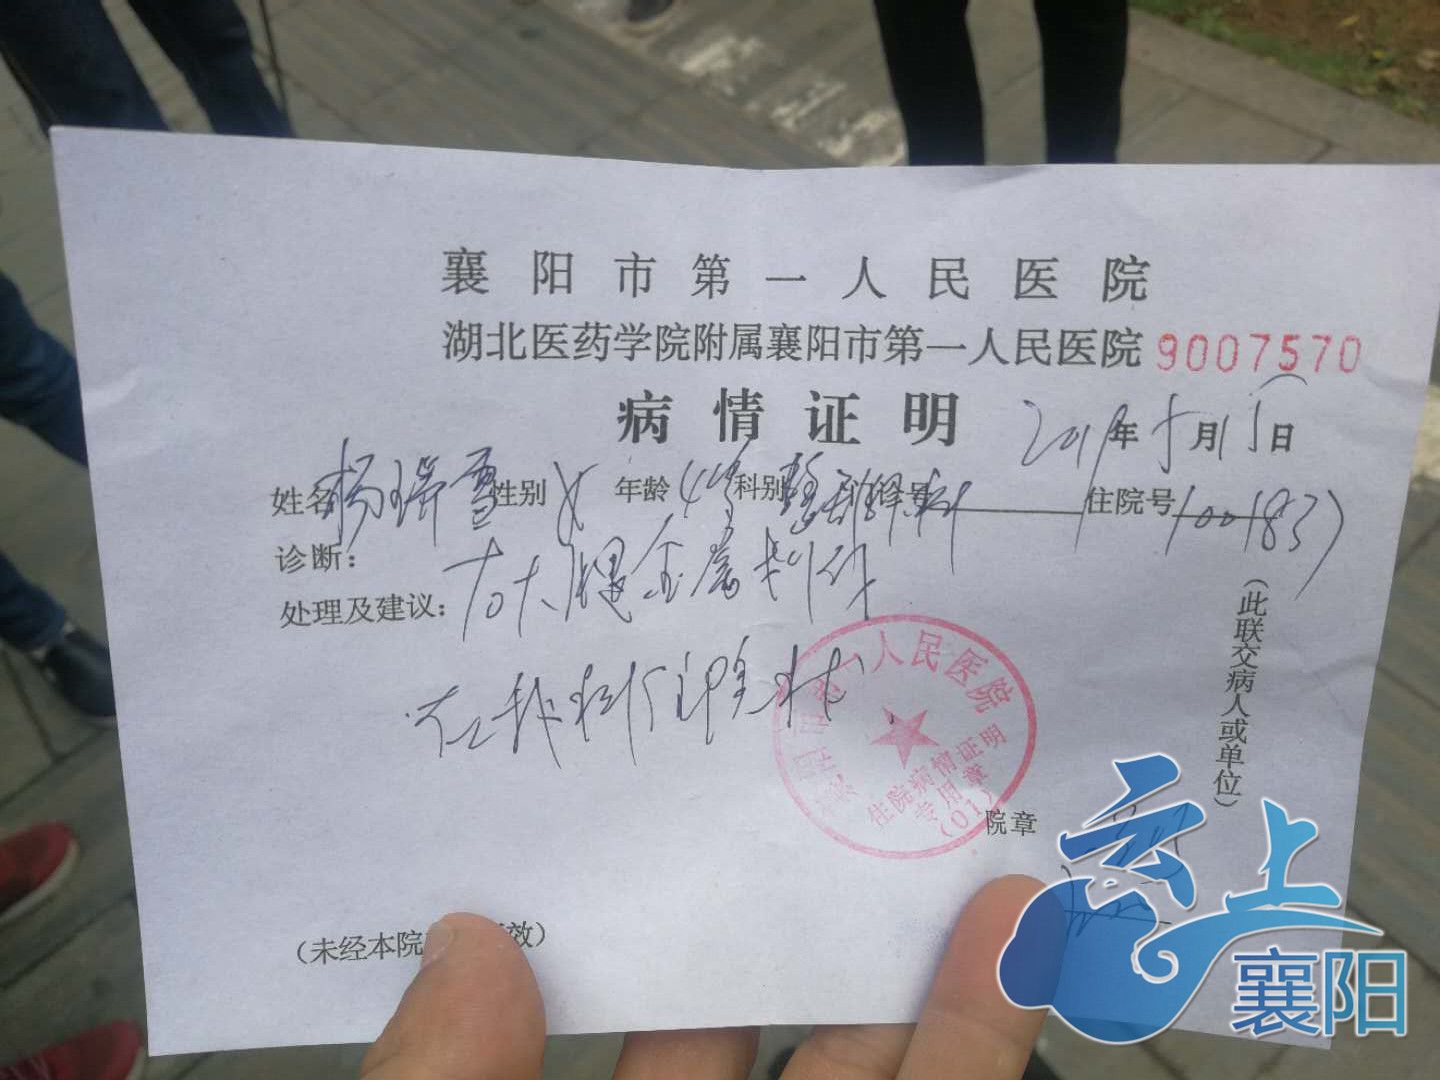 襄阳市第一人民医院
湖北医药学院附属襄阳市第一人民医院 9007570
病情证明
2019年5月15日
姓名 杨瑞雪 性别 女 年龄 4岁 科别 整形外科 住院号
诊断：
处理及建议： 右大腿金属利件
在我科行门诊
人民医院
住院病情证明
专用章
(01)
院章
(此联交病人或单位)
(未经本院 效)
云上
襄阳